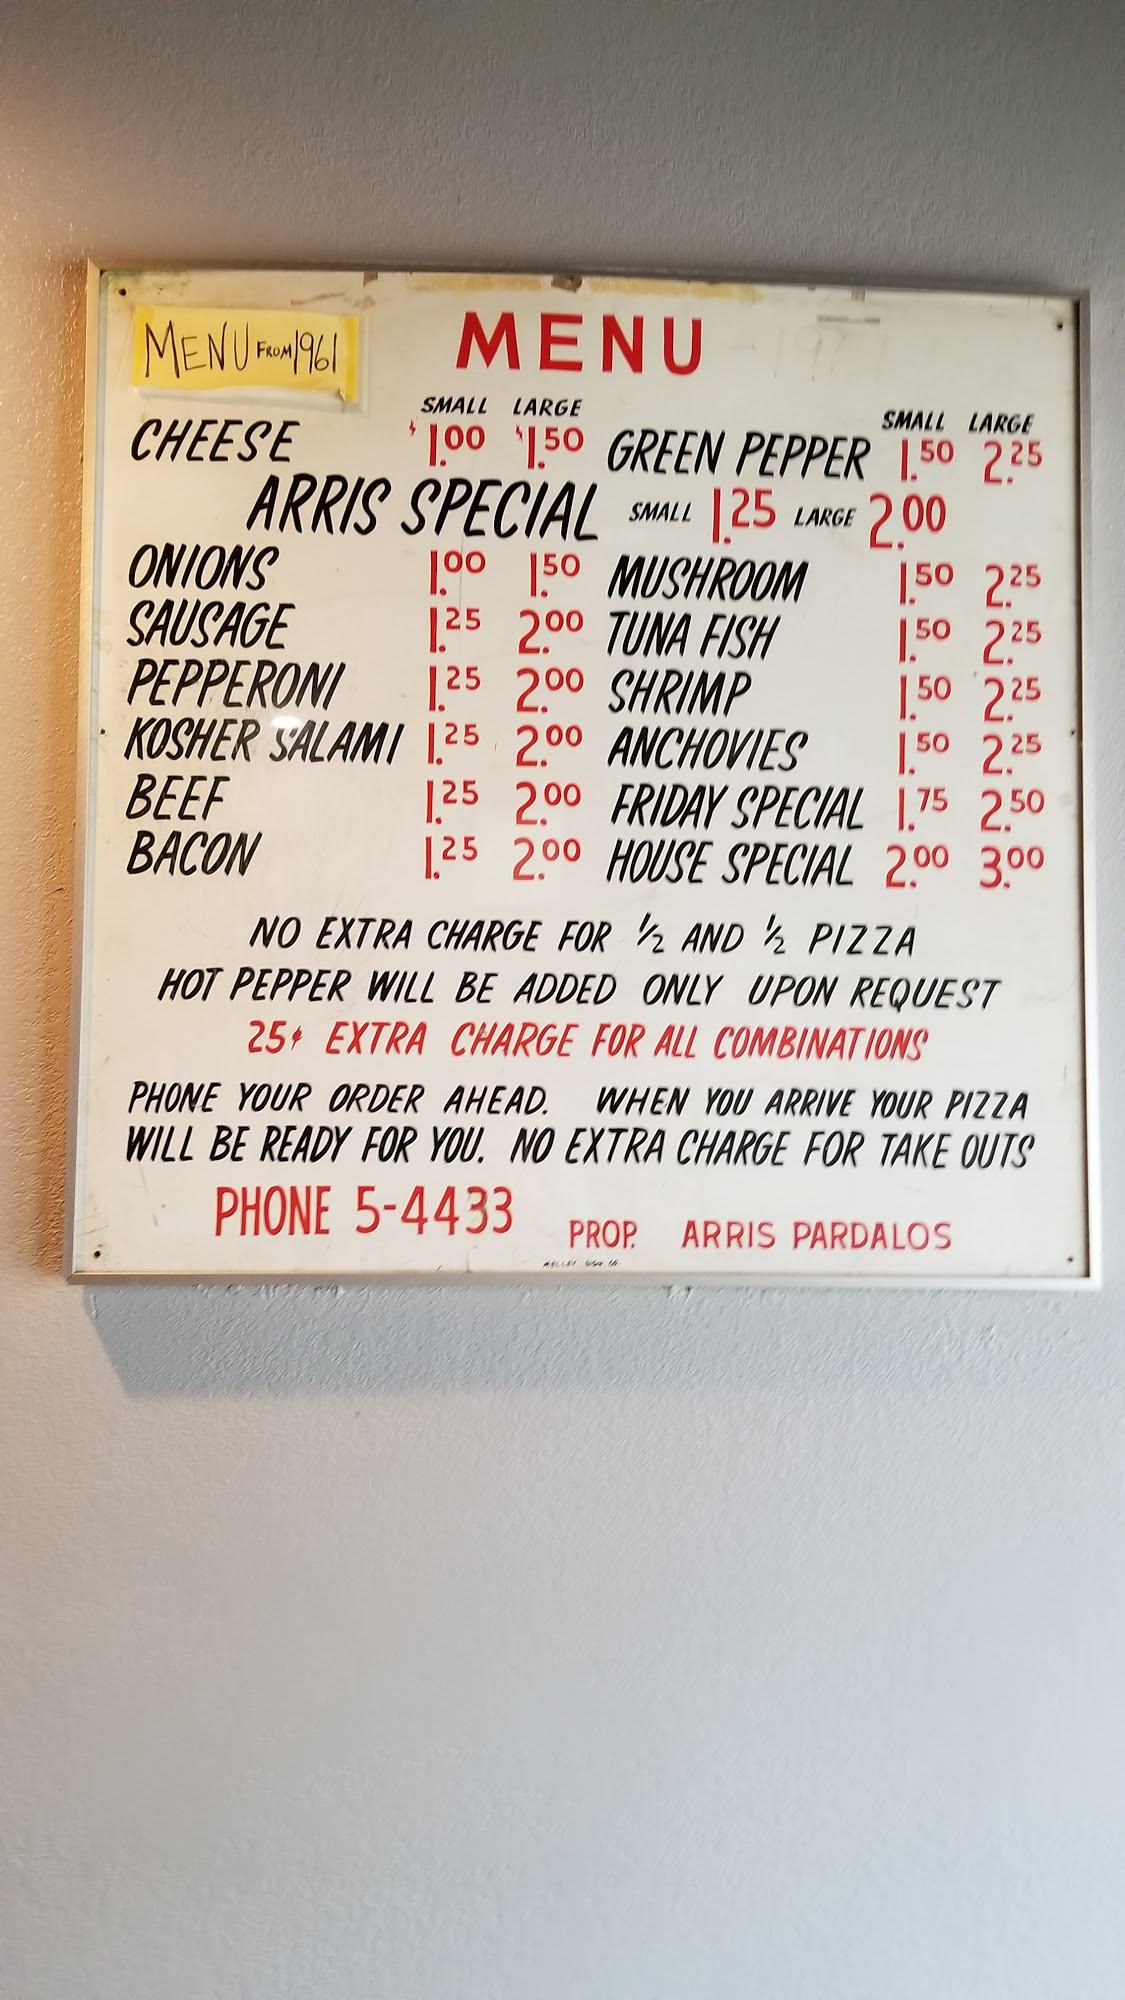 MENU FROM 1961
MENU
SMALL LARGE
SMALL LARGE
CHEESE $1.00 $1.50 GREEN PEPPER 1.50 2.25
ARRIS SPECIAL SMALL 1.25 LARGE 2.00
ONIONS 1.00 1.50 MUSHROOM 1.50 2.25
SAUSAGE 1.25 2.00 TUNA FISH 1.50 2.25
PEPPERONI 1.25 2.00 SHRIMP 1.50 2.25
KOSHER SALAMI 1.25 2.00 ANCHOVIES 1.50 2.25
BEEF 1.25 2.00 FRIDAY SPECIAL 1.75 2.50
BACON 1.25 2.00 HOUSE SPECIAL 2.00 3.00
NO EXTRA CHARGE FOR ½ AND ½ PIZZA
HOT PEPPER WILL BE ADDED ONLY UPON REQUEST
25¢ EXTRA CHARGE FOR ALL COMBINATIONS
PHONE YOUR ORDER AHEAD. WHEN YOU ARRIVE YOUR PIZZA
WILL BE READY FOR YOU. NO EXTRA CHARGE FOR TAKE OUTS
PHONE 5-4433 PROP. ARRIS PARDALOS